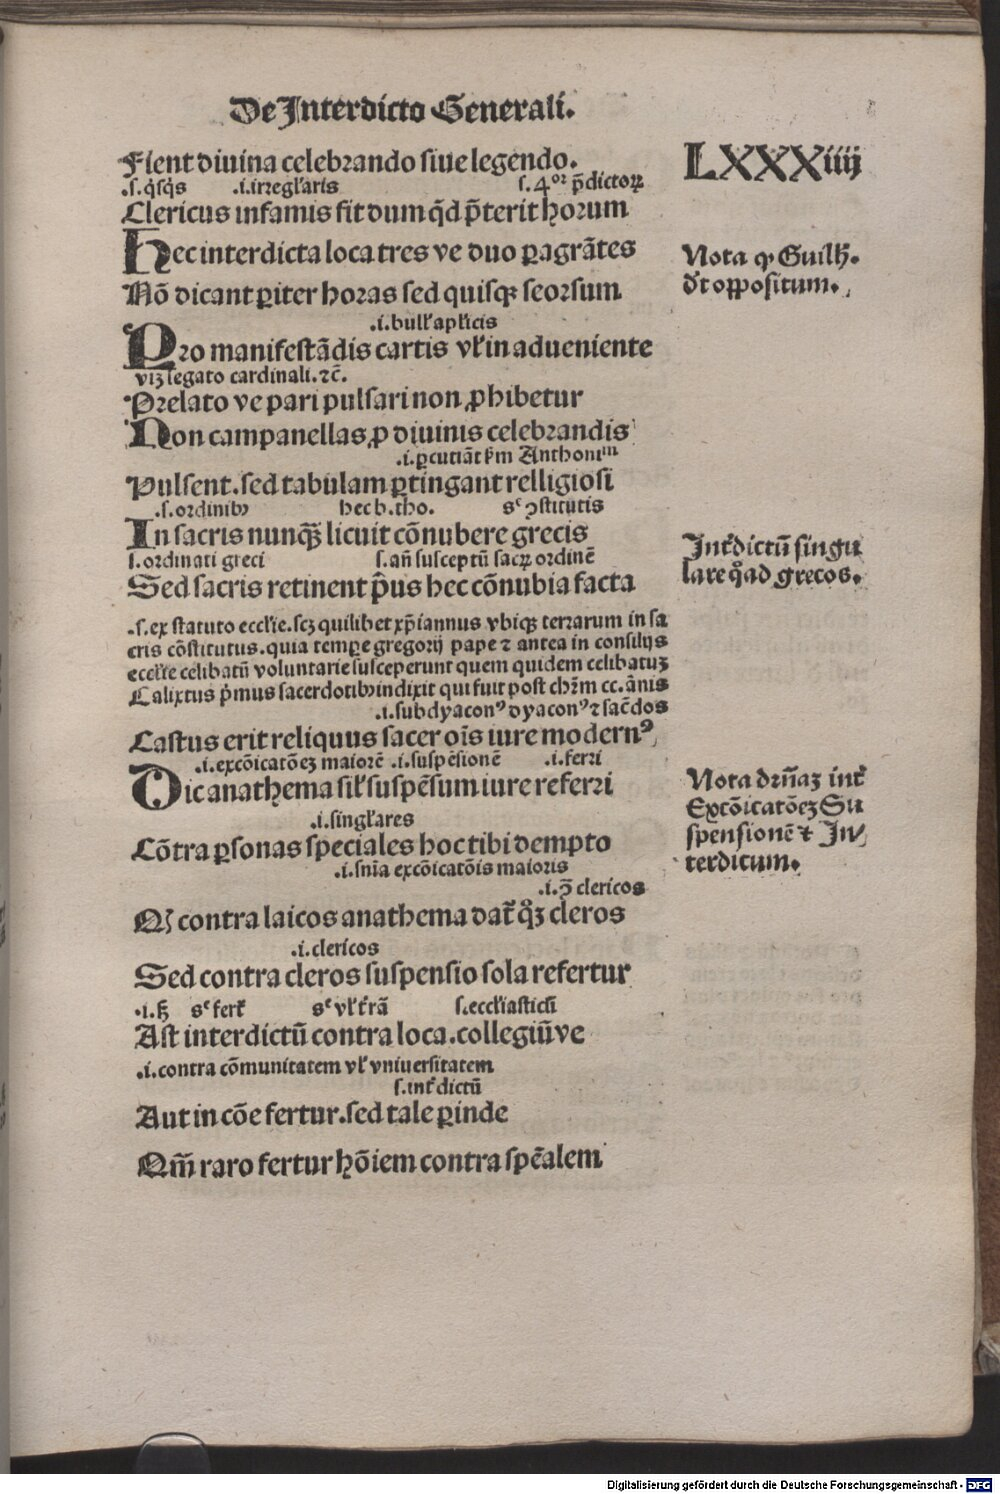 De Interdicto Generali.
LXXXiiij
Fient diuina celebrando siue legendo.
.s. q̃sq̃s .i. irregl'aris s. 4or p̃dictoꝝ
Clericus infamis fit dum q̃d p̃terit horum
Hec interdicta loca tres ve duo ꝑagrãtes
Nõ dicant ꝑiter horas sed quisqꝫ seorsum
Nota ꝙ Guilh.
d't oppositum.
.i. bull' apl'icis
Pro manifestãdis cartis vl' in adueniente
viꝫ legato cardinali. ⁊c̃.
Prelato ve pari pulsari non ꝓhibetur
Non campanellas ꝓ diuinis celebrandis
.i. ꝑcutiãt s'm Anthoniũm
Pulsent. sed tabulam ꝑtingant relligiosi
.s. ordinibꝫ hec b. tho. sc ꝯstitutis
In sacris nunqꝫ̃ licuit cõnubere grecis
s. ordinati greci s. añ susceptũ sacꝝ ordinẽ
Sed sacris retinent p̃us hec cõnubia facta
Int'dictũ singu
lare q̊ad grecos.
.s. ex statuto eccl'ie. scꝫ quilibet xp̃iannus vbiqꝫ terrarum in sa
cris cõstitutus. quia tempꝑe gregorij pape ⁊ antea in consilijs
eccl'ie celibatũ voluntarie susceperunt quem quidem celibatuꝫ
Calixtus p̃mus sacerdotibꝫ indixit qui fuit post chr̃m cc. ãnis
.i. subdyaconꝰ dyaconꝰ ⁊ sac̃dos
Castus erit reliquus sacer oĩs iure modernꝰ
.i. excõicatõeꝫ maiorẽ .i. suspẽsionẽ .i. ferri
Dic anathema sil' suspẽsum iure referri
Nota dr̃ñaꝫ int'
Excõicatõeꝫ Su
spensionẽ ⁊ In/
terditum.
.i. singl'ares
Cõtra ꝑsonas speciales hoc tibi dempto
.i. snĩa excõicatõis maioris
.i. ꝯ̃ clericos
Qꝫ contra laicos anathema dat' q̊ꝫ cleros
.i. clericos
Sed contra cleros suspensio sola refertur
.i. hꝫ sc fert' sc vl' t'rã s. eccl'iasticũ
Ast interdictũ contra loca. collegiũ ve
.i. contra cõmunitatem vl' vniuersitatem
s. int'dictũ
Aut in cõe fertur. sed tale ꝑinde
Qm̃ raro fertur hõiem contra spẽalem
Digitalisierung gefördert durch die Deutsche Forschungsgemeinschaft - DFG